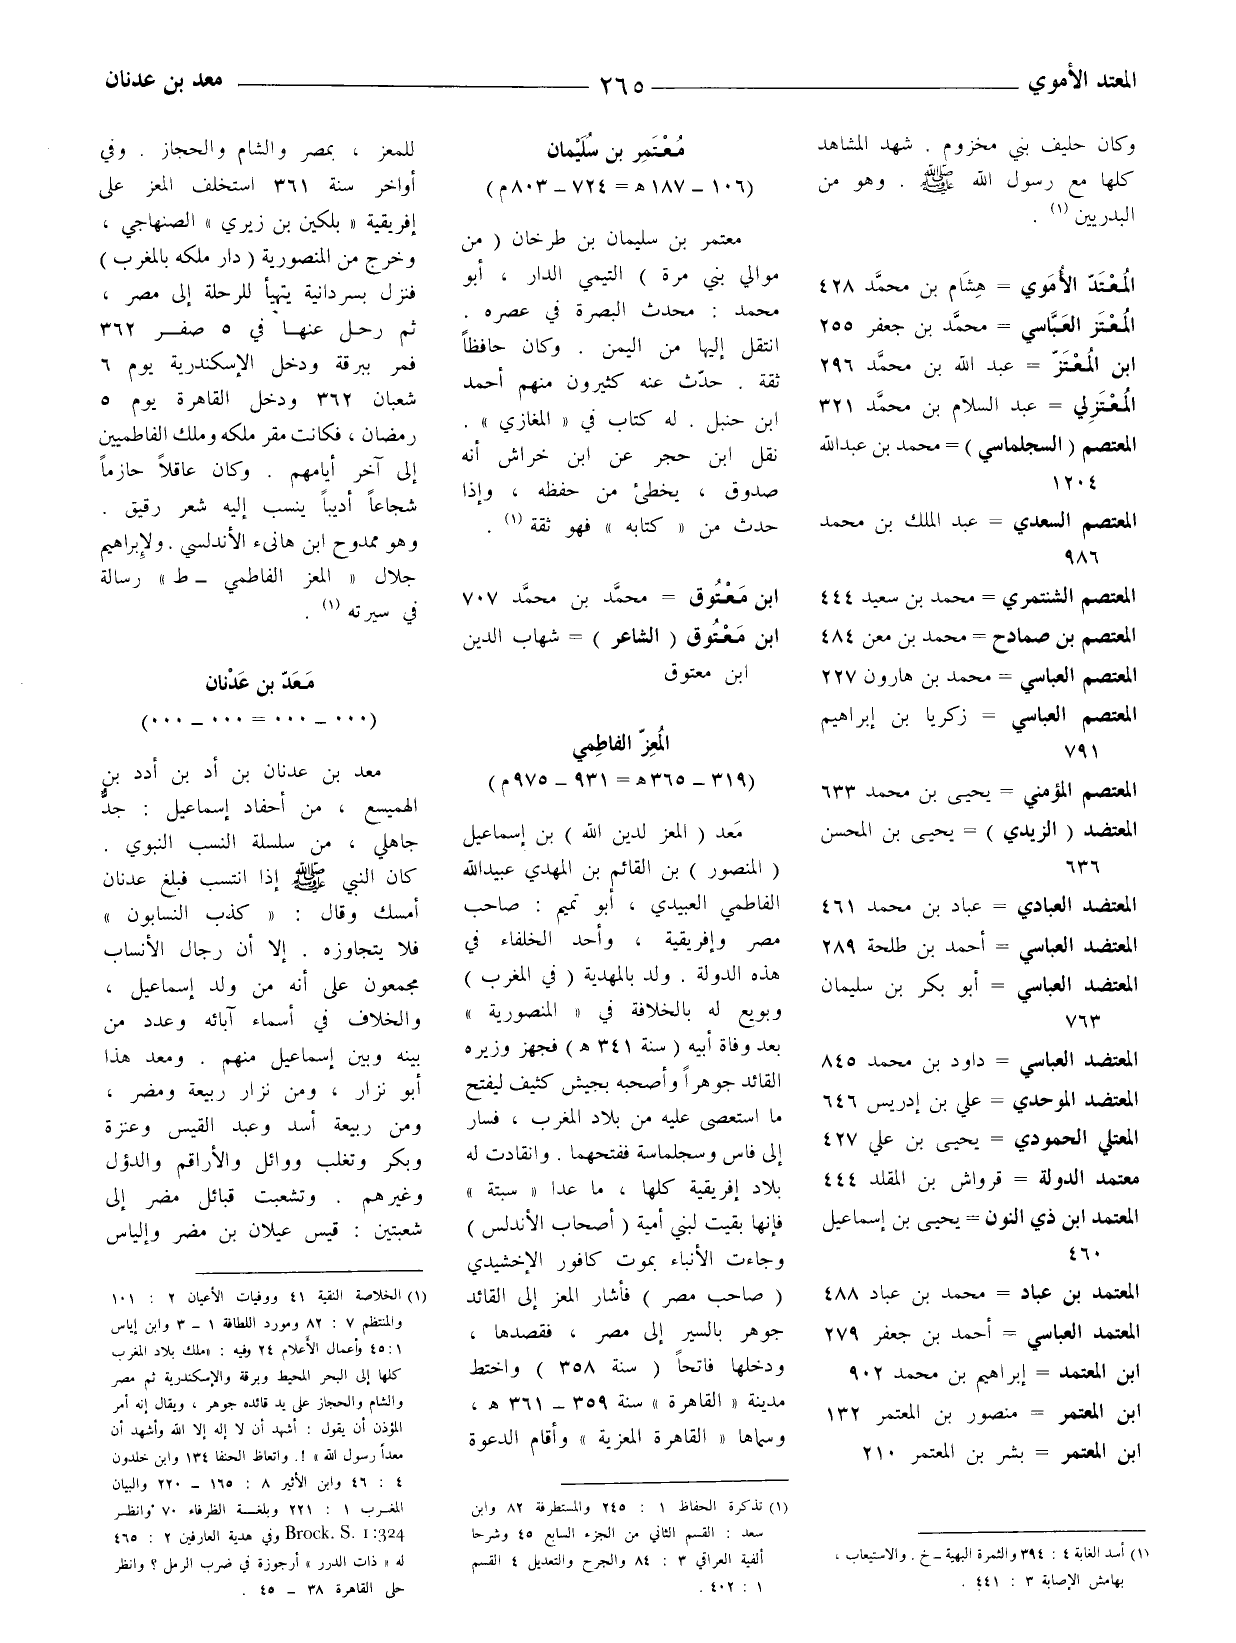 المعتد الأموي ــــ ٢٦٥ ــــ معد بن عدنان
وكان حليف بني مخزوم . شهد المشاهد
كلها مع رسول الله ﷺ . وهو من
البدريين (١) .
المُعْتَدّ الأُمَوي = هِشَام بن محمَّد ٤٢٨
المُعْتَز العَبَّاسي = محمَّد بن جعفر ٢٥٥
ابن المُعْتَزّ = عبد الله بن محمَّد ٢٩٦
المُعْتَزِلي = عبد السلام بن محمَّد ٣٢١
المعتصم ( السجلماسي ) = محمد بن عبدالله
١٢٠٤
المعتصم السعدي = عبد الملك بن محمد
٩٨٦
المعتصم الشنتمري = محمد بن سعيد ٤٤٤
المعتصم بن صمادح = محمد بن معن ٤٨٤
المعتصم العباسي = محمد بن هارون ٢٢٧
المعتصم العباسي = زكريا بن إبراهيم
٧٩١
المعتصم المؤمني = يحيى بن محمد ٦٣٣
المعتضد ( الزيدي ) = يحيى بن المحسن
٦٣٦
المعتضد العبادي = عباد بن محمد ٤٦١
المعتضد العباسي = أحمد بن طلحة ٢٨٩
المعتضد العباسي = أبو بكر بن سليمان
٧٦٣
المعتضد العباسي = داود بن محمد ٨٤٥
المعتضد الموحدي = علي بن إدريس ٦٤٦
المعتلي الحمودي = يحيى بن علي ٤٢٧
معتمد الدولة = قرواش بن المقلد ٤٤٤
المعتمد ابن ذي النون = يحيى بن إسماعيل
٤٦٠
المعتمد بن عباد = محمد بن عباد ٤٨٨
المعتمد العباسي = أحمد بن جعفر ٢٧٩
ابن المعتمد = إبراهيم بن محمد ٩٠٢
ابن المعتمر = منصور بن المعتمر ١٣٢
ابن المعتمر = بشر بن المعتمر ٢١٠
(١) أسد الغابة ٤ : ٣٩٤ والثمرة البهية ــ خ . والاستيعاب ،
بهامش الإصابة ٣ : ٤٤١ .
مُعْتَمِر بن سُلَيْمان
(١٠٦ ــ ١٨٧ هـ = ٧٢٤ ــ ٨٠٣م)
معتمر بن سليمان بن طرخان ( من
موالي بني مرة ) التيمي الدار ، أبو
محمد : محدث البصرة في عصره .
انتقل إليها من اليمن . وكان حافظاً
ثقة . حدّث عنه كثيرون منهم أحمد
ابن حنبل . له كتاب في « المغازي » .
نقل ابن حجر عن ابن خراش أنه
صدوق ، يخطئ من حفظه ، وإذا
حدث من « كتابه » فهو ثقة (١) .
ابن مَعْتُوق = محمَّد بن محمَّد ٧٠٧
ابن مَعْتُوق ( الشاعر ) = شهاب الدين
ابن معتوق
المُعِزّ الفاطِمي
(٣١٩ ــ ٣٦٥هـ = ٩٣١ ــ ٩٧٥م)
مَعد ( المعز لدين الله ) بن إسماعيل
( المنصور ) بن القائم بن المهدي عبيدالله
الفاطمي العبيدي ، أبو تميم : صاحب
مصر وإفريقية ، وأحد الخلفاء في
هذه الدولة . ولد بالمهدية ( في المغرب )
وبويع له بالخلافة في « المنصورية »
بعد وفاة أبيه ( سنة ٣٤١ هـ ) فجهز وزيره
القائد جوهراً وأصحبه بجيش كثيف ليفتح
ما استعصى عليه من بلاد المغرب ، فسار
إلى فاس وسجلماسة ففتحهما . وانقادت له
بلاد إفريقية كلها ، ما عدا « سبتة »
فإنها بقيت لبني أمية ( أصحاب الأندلس )
وجاءت الأنباء بموت كافور الإخشيدي
( صاحب مصر ) فأشار المعز إلى القائد
جوهر بالسير إلى مصر ، فقصدها ،
ودخلها فاتحاً ( سنة ٣٥٨ ) واختط
مدينة « القاهرة » سنة ٣٥٩ ــ ٣٦١ هـ ،
وسماها « القاهرة المعزية » وأقام الدعوة
(١) تذكرة الحفاظ ١ : ٢٤٥ والمستطرفة ٨٢ وابن
سعد : القسم الثاني من الجزء السابع ٤٥ وشرحا
ألفية العراقي ٣ : ٨٤ والجرح والتعديل ٤ القسم
١ : ٤٠٢ .
للمعز ، بمصر والشام والحجاز . وفي
أواخر سنة ٣٦١ استخلف المعز على
إفريقية « بلكين بن زيري » الصنهاجي ،
وخرج من المنصورية ( دار ملكه بالمغرب )
فنزل بسردانية يتهيأ للرحلة إلى مصر ،
ثم رحل عنها في ٥ صفر ٣٦٢
فمر ببرقة ودخل الإسكندرية يوم ٦
شعبان ٣٦٢ ودخل القاهرة يوم ٥
رمضان ، فكانت مقر ملكه وملك الفاطميين
إلى آخر أيامهم . وكان عاقلاً حازماً
شجاعاً أديباً ينسب إليه شعر رقيق .
وهو ممدوح ابن هانىء الأندلسي . ولإبراهيم
جلال « المعز الفاطمي ــ ط » رسالة
في سيرته (١) .
مَعَدّ بن عَدْنان
(٠٠٠ ــ ٠٠٠ = ٠٠٠ ــ ٠٠٠)
معد بن عدنان بن أد بن أدد بن
الهميسع ، من أحفاد إسماعيل : جدٌّ
جاهلي ، من سلسلة النسب النبوي .
كان النبي ﷺ إذا انتسب فبلغ عدنان
أمسك وقال : « كذب النسابون »
فلا يتجاوزه . إلا أن رجال الأنساب
مجمعون على أنه من ولد إسماعيل ،
والخلاف في أسماء آبائه وعدد من
بينه وبين إسماعيل منهم . ومعد هذا
أبو نزار ، ومن نزار ربيعة ومضر ،
ومن ربيعة أسد وعبد القيس وعنزة
وبكر وتغلب ووائل والأراقم والدؤل
وغيرهم . وتشعبت قبائل مضر إلى
شعبتين : قيس عيلان بن مضر وإلياس
(١) الخلاصة النقية ٤١ ووفيات الأعيان ٢ : ١٠١
والمنتظم ٧ : ٨٢ ومورد اللطافة ١ ــ ٣ وابن إياس
١ : ٤٥ وأعمال الأعلام ٢٤ وفيه : «ملك بلاد المغرب
كلها إلى البحر المحيط وبرقة والإسكندرية ثم مصر
والشام والحجاز على يد قائده جوهر ، ويقال إنه أمر
المؤذن أن يقول : أشهد أن لا إله إلا الله وأشهد أن
معداً رسول الله » !. واتعاظ الحنفا ١٣٤ وابن خلدون
٤ : ٤٦ وابن الأثير ٨ : ١٦٥ ــ ٢٢٠ والبيان
المغرب ١ : ٢٢١ وبلغة الظرفاء ٧٠ وانظر
Brock. S. 1:324 وفي هدية العارفين ٢ : ٤٦٥
له « ذات الدرر » أرجوزة في ضرب الرمل ؟ وانظر
حلى القاهرة ٣٨ ــ ٤٥ .